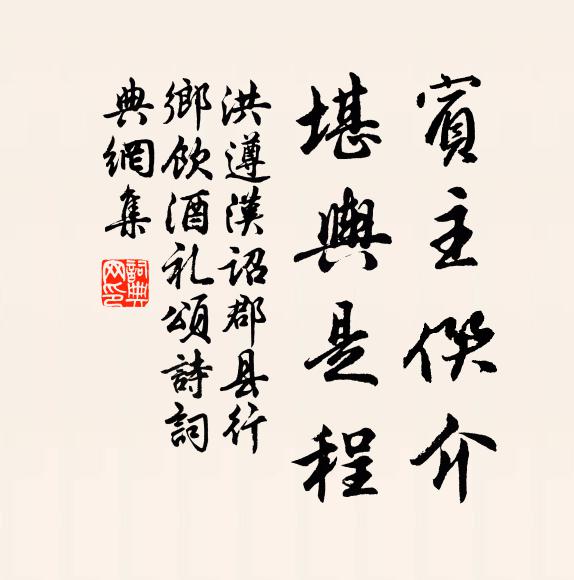 賓主僎介
堪輿是程
洪遵漢詔郡县行
鄉飲酒礼頌詩詞
典網集
詞典网印